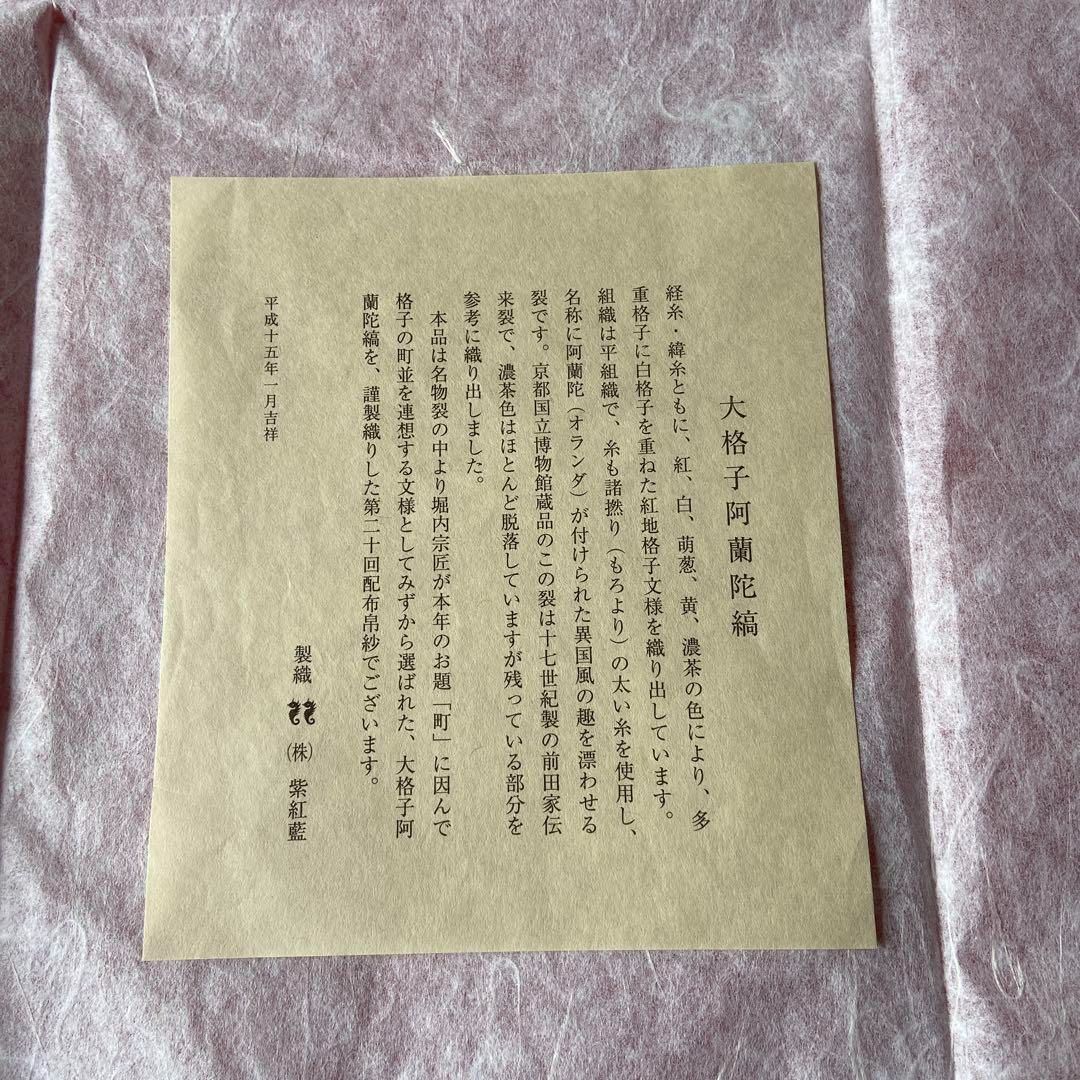 大格子阿蘭陀縞
経糸・緯糸ともに、紅、白、萌葱、黄、濃茶の色により、多
重格子に白格子を重ねた紅地格子文様を織り出しています。
組織は平組織で、糸も諸撚り（もろより）の太い糸を使用し、
名称に阿蘭陀（オランダ）が付けられた異国風の趣を漂わせる
裂です。京都国立博物館蔵品のこの裂は十七世紀製の前田家伝
来裂で、濃茶色はほとんど脱落していますが残っている部分を
参考に織り出しました。
本品は名物裂の中より堀内宗匠が本年のお題「町」に因んで
格子の町並を連想する文様としてみずから選ばれた、大格子阿
蘭陀縞を、謹製織りした第二十回配布帛紗でございます。
製織 （株）紫紅藍
平成十五年一月吉祥